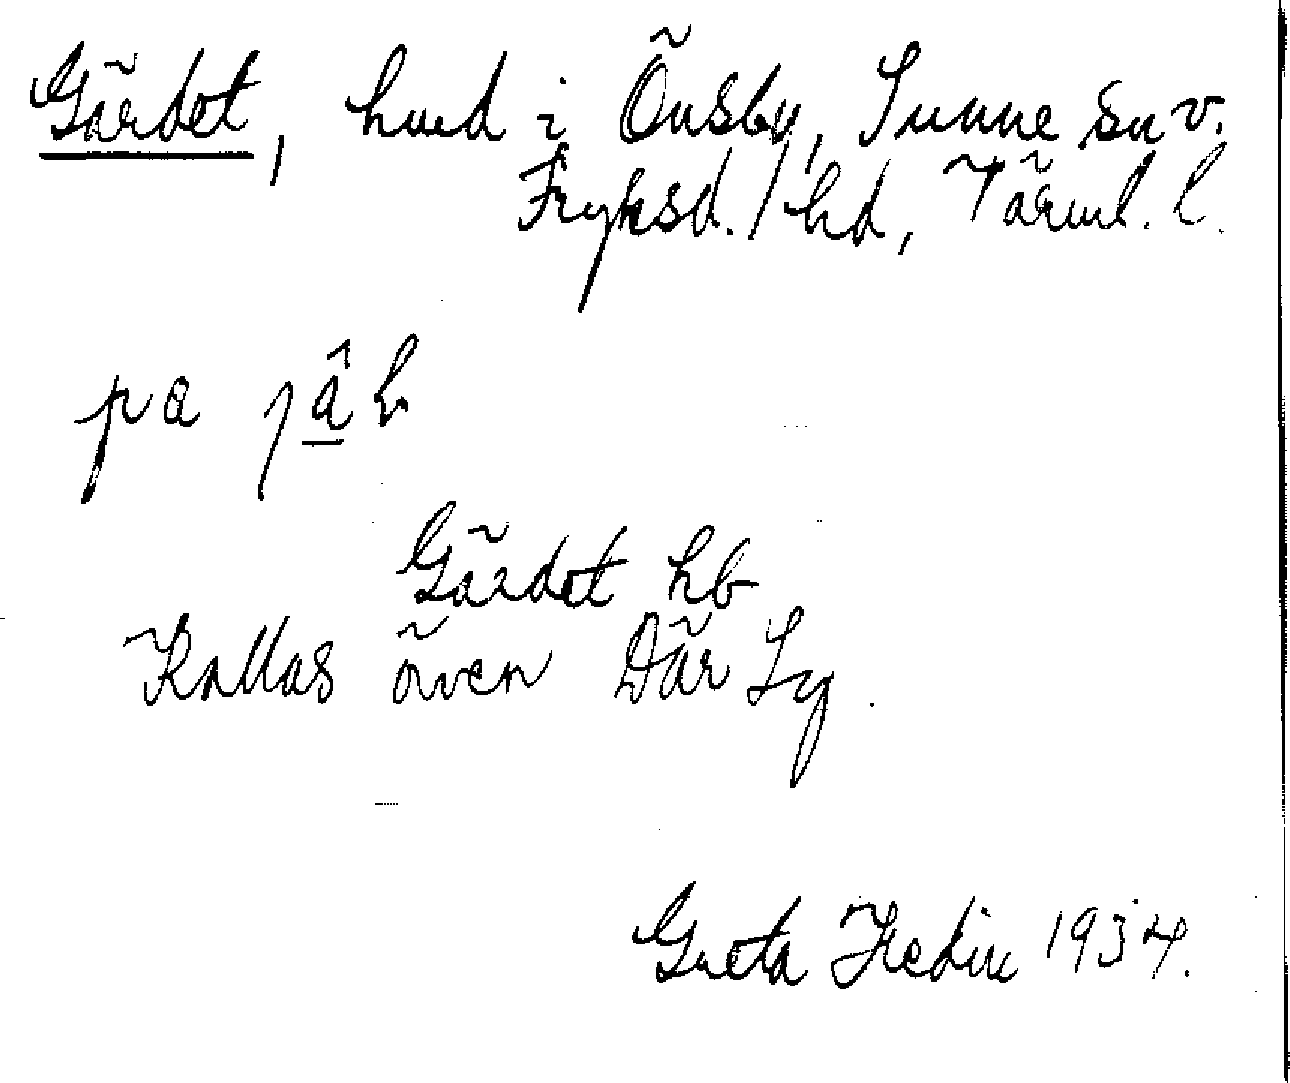 Gärdet, hmd i Önsby, Sunne sn v.
Fryksd. hd, Värml. l.
pa
Gärdet hb
Kallas även Där Sy.
Greta Hedin 1934.